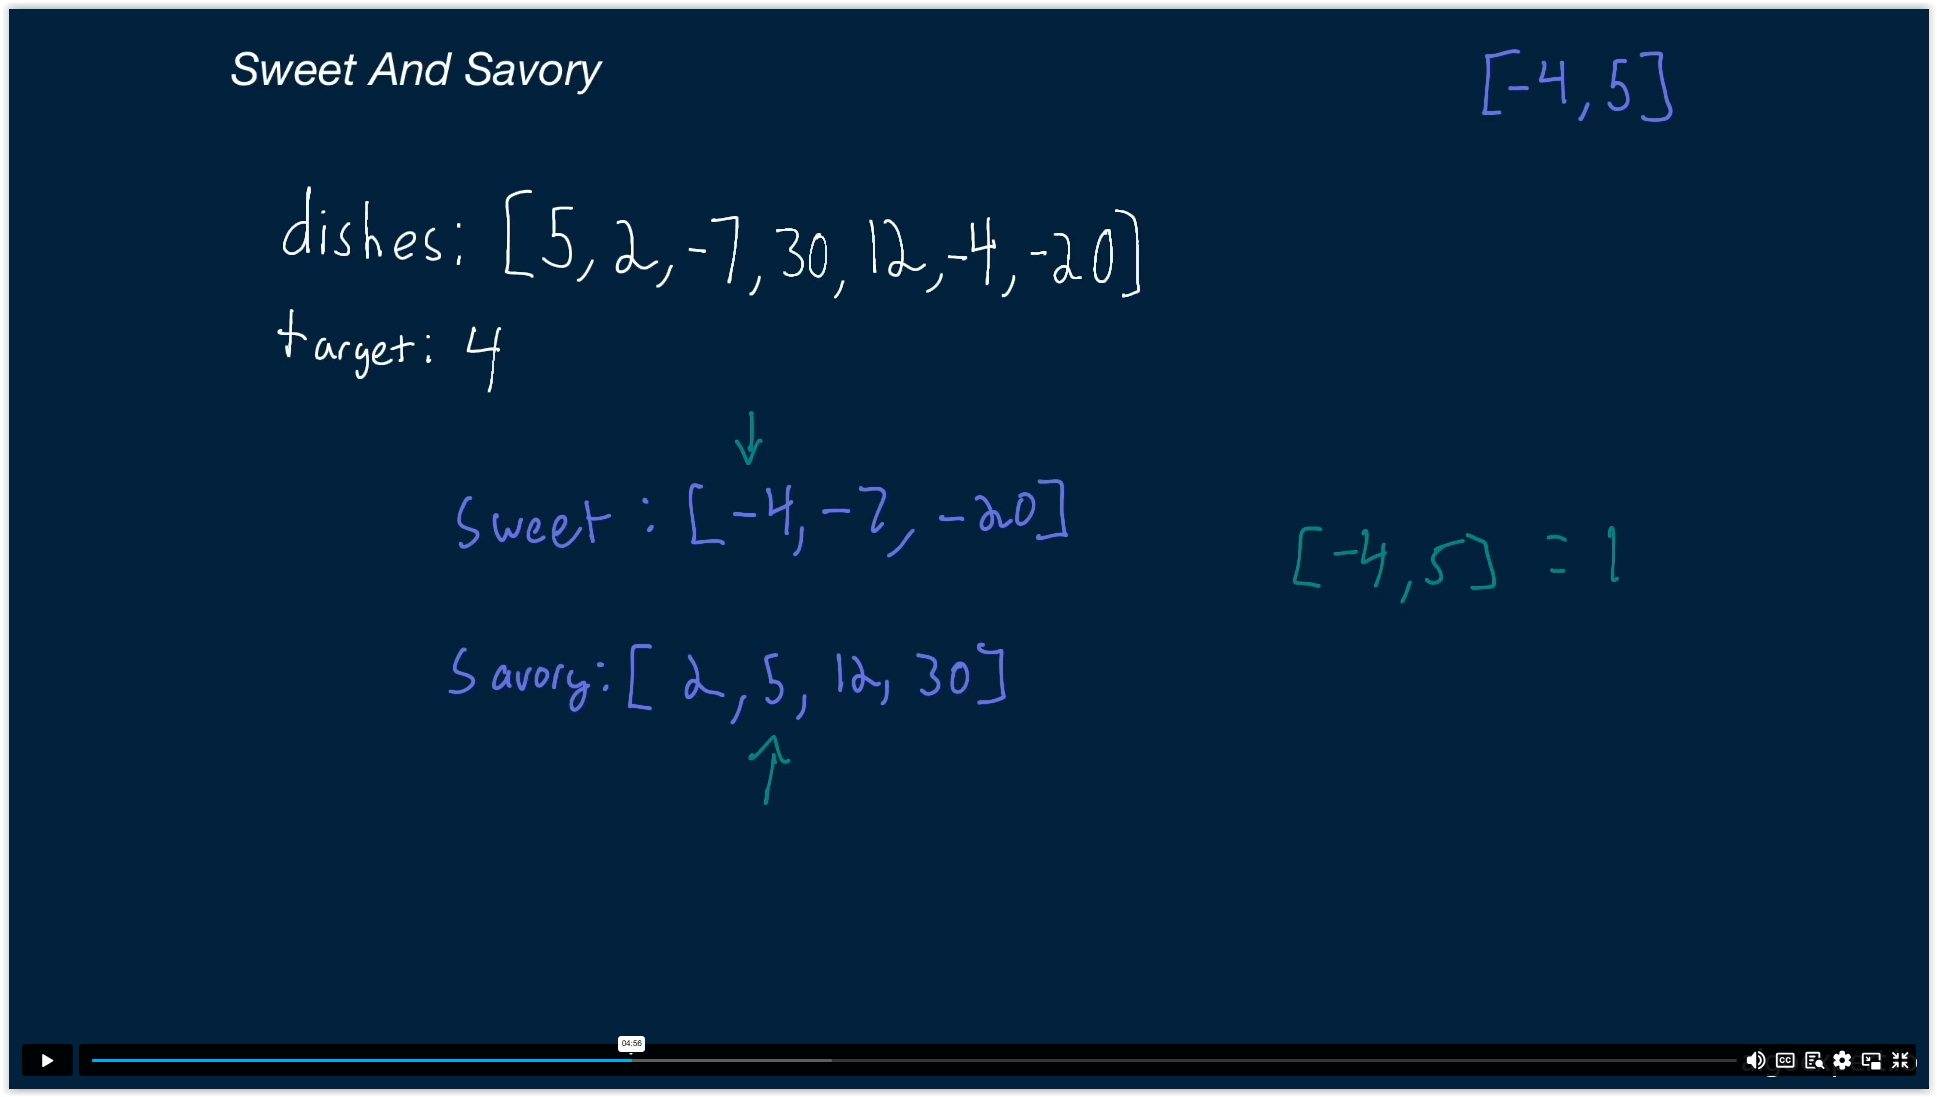 Sweet And Savory
[-4, 5]
dishes: [5, 2, -7, 30, 12, -4, -20]
target: 4
sweet: [-4, -7, -20]
[-4, 5] = 1
savory: [2, 5, 12, 30]
04:56
CC